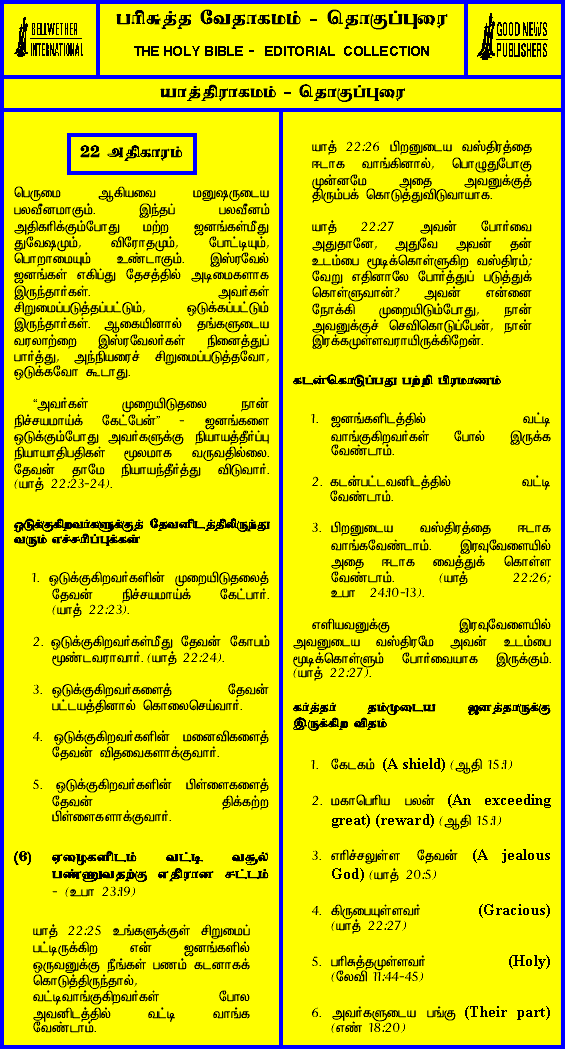 BELLWETHER
INTERNATIONAL
பரிசுத்த வேதாகமம் - தொகுப்புரை
THE HOLY BIBLE - EDITORIAL COLLECTION
GOOD NEWS
PUBLISHERS
யாத்திராகமம் - தொகுப்புரை
22 அதிகாரம்
பெருமை ஆகியவை மனுஷருடைய
பலவீனமாகும். இந்தப் பலவீனம்
அதிகரிக்கும்போது மற்ற ஜனங்கள்மீது
துவேஷமும், விரோதமும், போட்டியும்,
பொறாமையும் உண்டாகும். இஸ்ரவேல்
ஜனங்கள் எகிப்து தேசத்தில் அடிமைகளாக
இருந்தார்கள். அவர்கள்
சிறுமைப்படுத்தப்பட்டும், ஒடுக்கப்பட்டும்
இருந்தார்கள். ஆகையினால் தங்களுடைய
வரலாற்றை இஸ்ரவேலர்கள் நினைத்துப்
பார்த்து, அந்நியரைச் சிறுமைப்படுத்தவோ,
ஒடுக்கவோ கூடாது.
“அவர்கள் முறையிடுதலை நான்
நிச்சயமாய்க் கேட்பேன்” - ஜனங்களை
ஒடுக்கும்போது அவர்களுக்கு நியாயத்தீர்ப்பு
நியாயாதிபதிகள் மூலமாக வருவதில்லை.
தேவன் தாமே நியாயந்தீர்த்து விடுவார்.
(யாத் 22:23-24).
ஒடுக்குகிறவர்களுக்குத் தேவனிடத்திலிருந்து
வரும் எச்சரிப்புக்கள்
1. ஒடுக்குகிறவர்களின் முறையிடுதலைத்
தேவன் நிச்சயமாய்க் கேட்பார்.
(யாத் 22:23).
2. ஒடுக்குகிறவர்கள்மீது தேவன் கோபம்
மூண்டவராவார். (யாத் 22:24).
3. ஒடுக்குகிறவர்களைத் தேவன்
பட்டயத்தினால் கொலைசெய்வார்.
4. ஒடுக்குகிறவர்களின் மனைவிகளைத்
தேவன் விதவைகளாக்குவார்.
5. ஒடுக்குகிறவர்களின் பிள்ளைகளைத்
தேவன் திக்கற்ற
பிள்ளைகளாக்குவார்.
(6) ஏழைகளிடம் வட்டி வசூல்
பண்ணுவதற்கு எதிரான சட்டம்
- (உபா 23:19)
யாத் 22:25 உங்களுக்குள் சிறுமைப்
பட்டிருக்கிற என் ஜனங்களில்
ஒருவனுக்கு நீங்கள் பணம் கடனாகக்
கொடுத்திருந்தால்,
வட்டிவாங்குகிறவர்கள் போல
அவனிடத்தில் வட்டி வாங்க
வேண்டாம்.
யாத் 22:26 பிறனுடைய வஸ்திரத்தை
ஈடாக வாங்கினால், பொழுதுபோகு
முன்னமே அதை அவனுக்குத்
திரும்பக் கொடுத்துவிடுவாயாக.
யாத் 22:27 அவன் போர்வை
அதுதானே, அதுவே அவன் தன்
உடம்பை மூடிக்கொள்ளுகிற வஸ்திரம்;
வேறு எதினாலே போர்த்துப் படுத்துக்
கொள்ளுவான்? அவன் என்னை
நோக்கி முறையிடும்போது, நான்
அவனுக்குச் செவிகொடுப்பேன், நான்
இரக்கமுள்ளவராயிருக்கிறேன்.
கடன்கொடுப்பது பற்றி பிரமாணம்
1. ஜனங்களிடத்தில் வட்டி
வாங்குகிறவர்கள் போல் இருக்க
வேண்டாம்.
2. கடன்பட்டவனிடத்தில் வட்டி
வேண்டாம்.
3. பிறனுடைய வஸ்திரத்தை ஈடாக
வாங்கவேண்டாம். இரவுவேளையில்
அதை ஈடாக வைத்துக் கொள்ள
வேண்டாம். (யாத் 22:26;
உபா 24:10-13).
எளியவனுக்கு இரவுவேளையில்
அவனுடைய வஸ்திரமே அவன் உடம்பை
மூடிக்கொள்ளும் போர்வையாக இருக்கும்.
(யாத் 22:27).
கர்த்தர் தம்முடைய ஜனத்தாருக்கு
இருக்கிற விதம்
1. கேடகம் (A shield) (ஆதி 15:1)
2. மகாபெரிய பலன் (An exceeding
great) (reward) (ஆதி 15:1)
3. எரிச்சலுள்ள தேவன் (A jealous
God) (யாத் 20:5)
4. கிருபையுள்ளவர் (Gracious)
(யாத் 22:27)
5. பரிசுத்தமுள்ளவர் (Holy)
(லேவி 11:44-45)
6. அவர்களுடைய பங்கு (Their part)
(எண் 18:20)